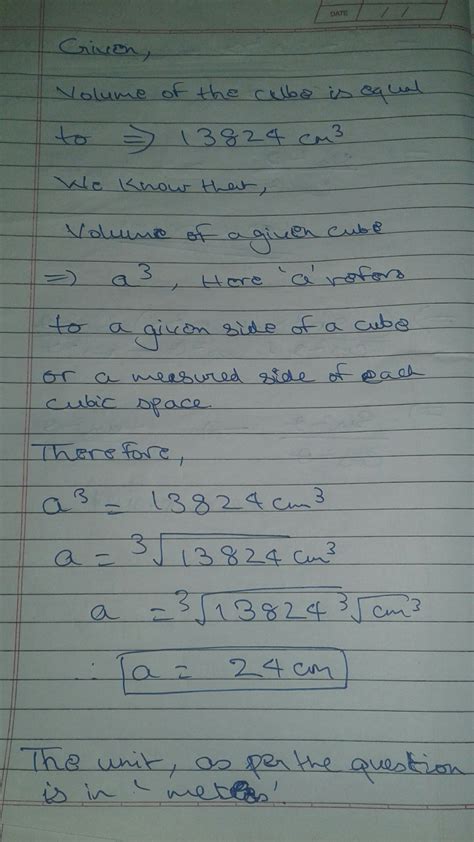 DATE / /
Given,
Volume of the cube is equal
to ⇒ 13824 cm³
We know that,
Volume of a given cube
⇒ a³, Here 'a' refers
to a given side of a cube
or a measured side of each
cubic space.
Therefore,
a³ = 13824 cm³
a = ³√13824 cm³
a = ³√13824 ³√cm³
∴ a = 24 cm
The unit, as per the question
is in